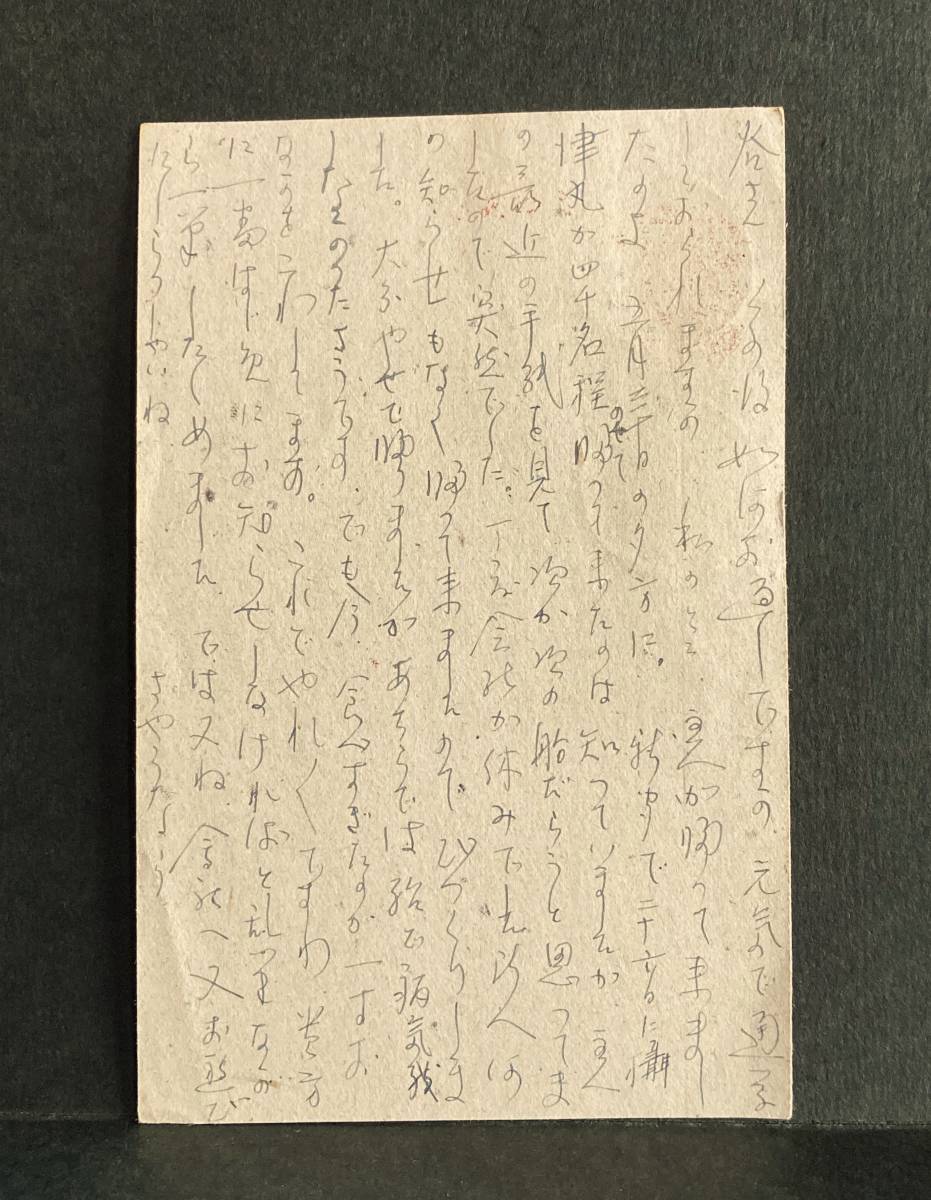 谷さん その後 如何お過しですの 元気ので通学
してをられますの 私のところ主人が帰つて来まし
たのよ 五月三十日の夕方に。新聞で二十六日に攝
津丸が四千名程のせて帰つて来たのは知つていましたが 主人
の最近の手紙を見て 次か次の船だらうと思つてま
したので突然でした。丁度会社が休みでした所へ何
の知らせもなく帰つて来ましたので びつくりしま
した。大分やせて帰りましたが あちらでは殆ど病気致
しなかつたさうです でも今 食べすぎたのか一寸お
なかをこわしてます。これでやれ〳〵ですわ 貴方
に一番はじめにお知らせしなければと乱筆なが
ら一筆したゝめました では又ね 会社へ又お遊び
にいらつしやいね さやうなら